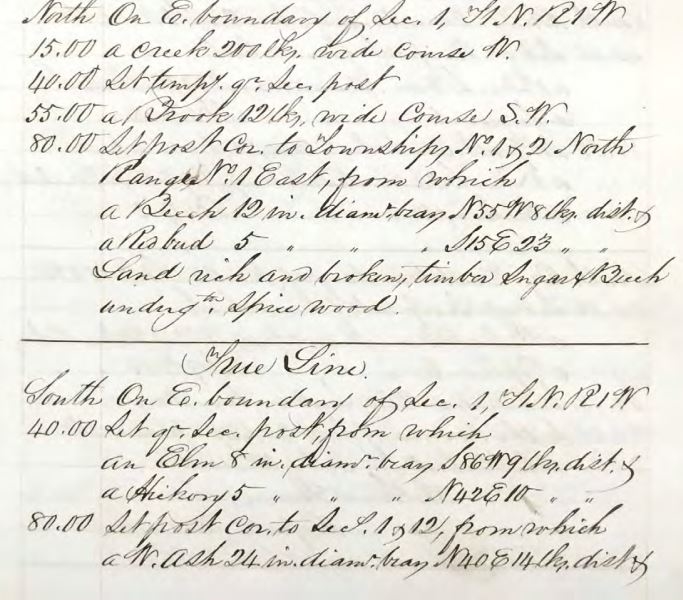 North On E. boundary of Sec. 1, T1N. R1W
15.00 a creek 200 lks. wide Course W.
40.00 Set tempy. qr. Sec. post
55.00 a Brook 12 lks. wide Course S.W.
80.00 Set post Cor. to Townships No. 1 & 2 North
Range No. 1 East, from which
a Beech 12 in. diamr. bears N55W 8 lks. dist. &
a Redbud 5 " " " S15E 23 " "
Land rich and broken, timber Sugar & Beech
undergth. Spice wood.
True Line.
South On E. boundary of Sec. 1, T1N. R1W
40.00 Set qr. Sec. post, from which
an Elm 8 in. diamr. bears S86W 9 lks. dist. &
a Hickory 5 " " " N42E 10 " "
80.00 Set post Cor. to Secs. 1 & 12, from which
a W. Ash 24 in. diamr. bears N40E 14 lks. dist &